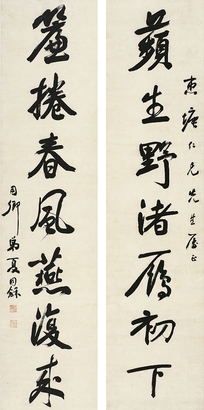 惠塘仁兄先生屬正
蘋生野渚雁初下
簾捲春風燕復來
用卿弟夏同龢